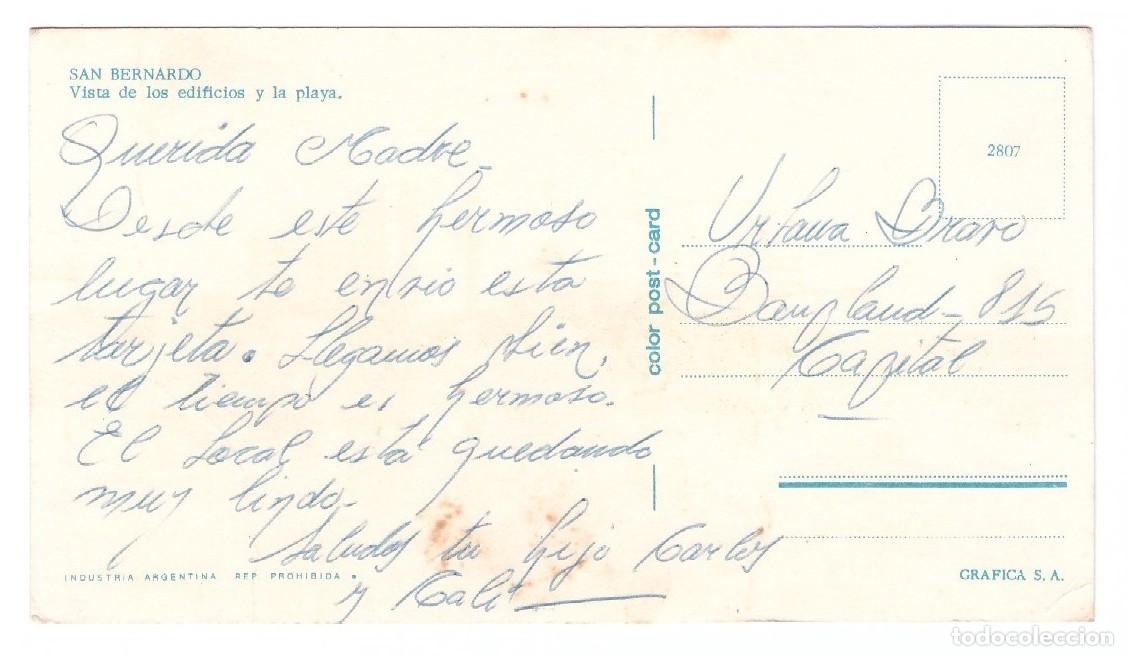 SAN BERNARDO
Vista de los edificios y la playa.
Querida Madre.
Desde este hermoso
lugar te envio esta
tarjeta. Llegamos bien,
el tiempo es hermoso.
El Local está quedando
muy lindo.
Saludos tu hijo Carlos
y Cali
INDUSTRIA ARGENTINA REP. PROHIBIDA
color post-card
2807
Bravo
815
Capital
GRAFICA S. A.
todocoleccion